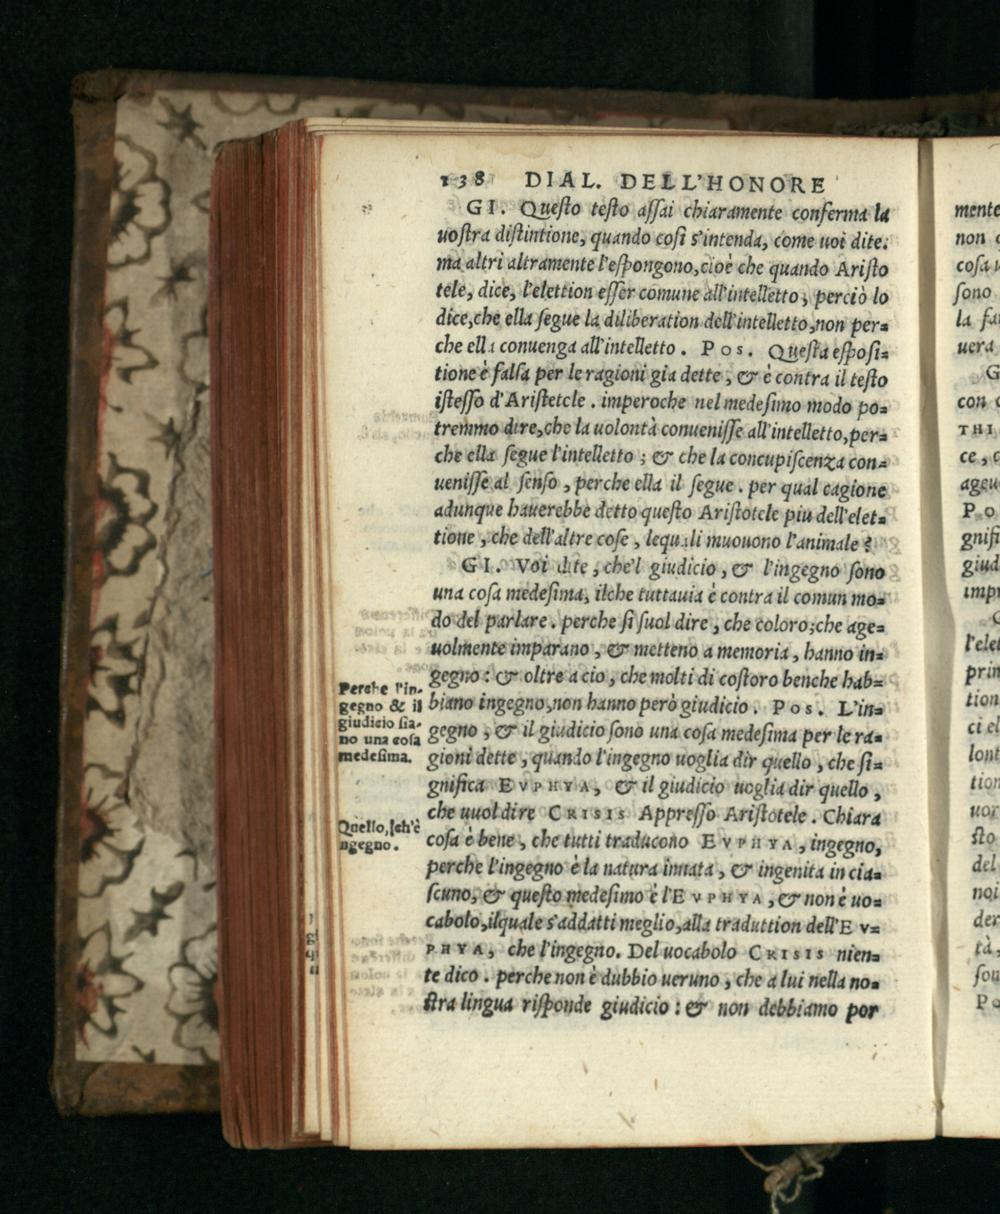 138 DIAL. DELL'HONORE
GI. Queſto teſto aſſai chiaramente conferma la
uoſtra diſtintione, quando coſi s'intenda, come uoi dite:
ma altri altramente l'eſpongono, cioè che quando Ariſto
tele, dice, l'elettion eſſer comune all'intelletto, perciò lo
dice, che ella ſegue la diliberation dell'intelletto, non per=
che ella conuenga all'intelletto. POS. Queſta eſpoſi=
tione è falſa per le ragioni gia dette, & è contra il teſto
iſteſſo d'Ariſtetcle. imperoche nel medeſimo modo po=
tremmo dire, che la uolontà conueniſſe all'intelletto, per=
che ella ſegue l'intelletto; & che la concupiſcenza con=
ueniſſe al ſenſo, perche ella il ſegue. per qual cagione
adunque hauerebbe detto queſto Ariſtotele piu dell'elet=
tione, che dell'altre coſe, lequali muouono l'animale?
GI. Voi dite, che'l giudicio, & l'ingegno ſono
una coſa medeſima, ilche tuttauia è contra il comun mo=
do del parlare. perche ſi ſuol dire, che coloro, che age=
uolmente imparano, & metteno a memoria, hanno in=
gegno: & oltre a cio, che molti di coſtoro benche hab=
biano ingegno, non hanno però giudicio. POS. L'in=
gegno, & il giudicio ſono una coſa medeſima per le ra=
gioni dette, quando l'ingegno uoglia dir quello, che ſi=
gnifica EVPHYA, & il giudicio uoglia dir quello,
che uuol dire CRISIS Appreſſo Ariſtotele. Chiara
coſa è bene, che tutti traducono EVPHYA, ingegno,
perche l'ingegno è la natura innata, & ingenita in cia=
ſcuno, & queſto medeſimo è l'EVPHYA, & non è uo=
cabolo, ilquale s'addatti meglio, alla traduttion dell'EV=
PHYA, che l'ingegno. Del uocabolo CRISIS nien=
te dico. perche non è dubbio ueruno, che a lui nella no=
ſtra lingua riſponde giudicio: & non debbiamo por
Perche l'in-
gegno & il
giudicio ſia-
no una coſa
medeſima.
Quello, ſch'è
ngegno.
mente
non
coſa
ſono
la
uera
G
con
THI
ce,
ageu
PO
gnifi
giud
impr
l'elet
prin
tion
ci el
lont
tion
uor
ſto
del
noi
der
tà,
ſon
Po